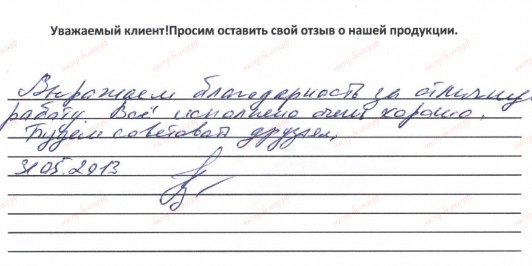 Уважаемый клиент!Просим оставить свой отзыв о нашей продукции.
Выражаем благодарность за отличную
работу. Всё исполнено очень хорошо.
Будем советовать друзьям.
31.05.2013